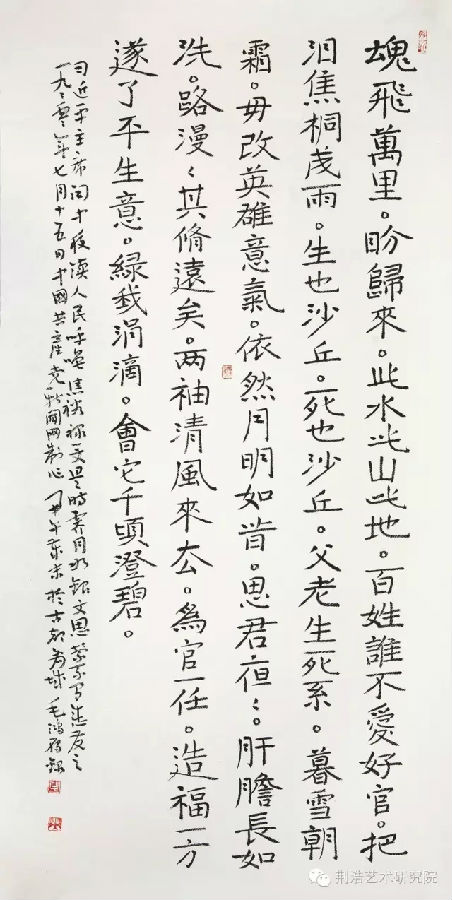 魂飛萬里。盼歸來。此水此山此地。百姓誰不愛好官。把
泪焦桐成雨。生也沙丘。死也沙丘。父老生死系。暮雪朝
霜。毋改英雄意氣。依然月明如昔。思君夜〻。肝膽長如
洗。路漫〻其脩遠矣。两袖清風來去。爲官一任。造福一方
遂了平生意。緑我涓滴。會它千頃澄碧。
习近平主席 人民呼
七月十五日中國共產党
荆浩艺术研究院